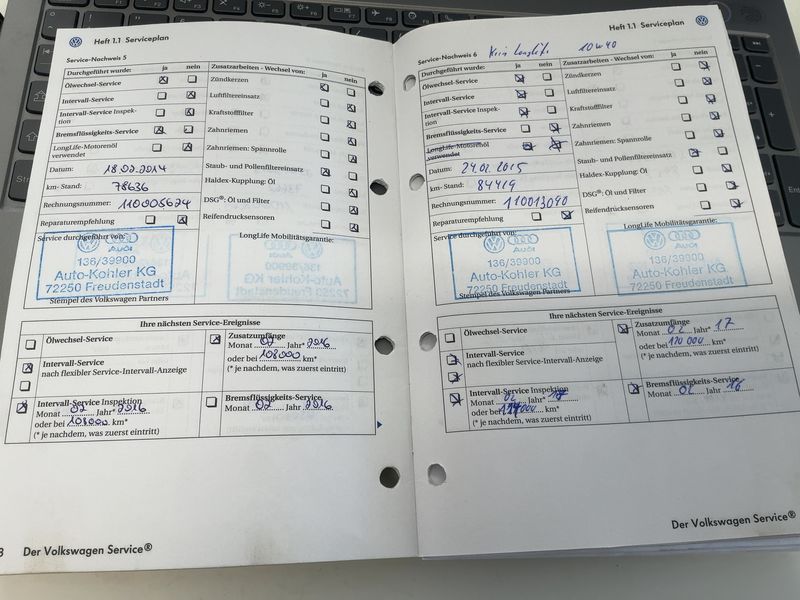 Heft 1.1 Serviceplan
Service-Nachweis 5
Durchgeführt wurde: ja nein
Ölwechsel-Service
Intervall-Service
Intervall-Service Inspek-
tion
Bremsflüssigkeits-Service
LongLife-Motorenöl
verwendet
Datum: 18.02.2014
km-Stand: 78636
Rechnungsnummer: 110005674
Reparaturempfehlung
Service durchgeführt von:
136/39900
Auto-Kohler KG
72250 Freudenstadt
Stempel des Volkswagen Partners
Zusatzarbeiten - Wechsel von: ja nein
Zündkerzen
Luftfiltereinsatz
Kraftstofffilter
Zahnriemen
Zahnriemen: Spannrolle
Staub- und Pollenfiltereinsatz
Haldex-Kupplung: Öl
DSG®: Öl und Filter
Reifendrucksensoren
LongLife Mobilitätsgarantie:
Ihre nächsten Service-Ereignisse
Ölwechsel-Service
Intervall-Service
nach flexibler Service-Intervall-Anzeige
Intervall-Service Inspektion
Monat 02 Jahr* 2016
oder bei 108000 km*
(* je nachdem, was zuerst eintritt)
Zusatzumfänge
Monat 02 Jahr* 2016
oder bei 108000 km*
(* je nachdem, was zuerst eintritt)
Bremsflüssigkeits-Service
Monat 02 Jahr 2016
Der Volkswagen Service®
Heft 1.1 Serviceplan
Service-Nachweis 6 Kein Longlife 10w40
Durchgeführt wurde: ja nein
Ölwechsel-Service
Intervall-Service
Intervall-Service Inspek-
tion
Bremsflüssigkeits-Service
LongLife-Motorenöl
verwendet
Datum: 24.02.2015
km-Stand: 84419
Rechnungsnummer: 110013090
Reparaturempfehlung
Service durchgeführt von:
Audi
136/39900
Auto-Kohler KG
72250 Freudenstadt
Stempel des Volkswagen Partners
Zusatzarbeiten - Wechsel von: ja nein
Zündkerzen
Luftfiltereinsatz
Kraftstofffilter
Zahnriemen
Zahnriemen: Spannrolle
Staub- und Pollenfiltereinsatz
Haldex-Kupplung: Öl
DSG®: Öl und Filter
Reifendrucksensoren
LongLife Mobilitätsgarantie:
Audi
136/39900
Auto-Kohler KG
72250 Freudenstadt
Ihre nächsten Service-Ereignisse
Ölwechsel-Service
Intervall-Service
nach flexibler Service-Intervall-Anzeige
Intervall-Service Inspektion
Monat 02 Jahr*
oder bei km*
(* je nachdem, was zuerst eintritt)
Zusatzumfänge
Monat 02 Jahr* 17
oder bei 120000 km*
(* je nachdem, was zuerst eintritt)
Bremsflüssigkeits-Service
Monat 02 Jahr 16
Der Volkswagen Service®